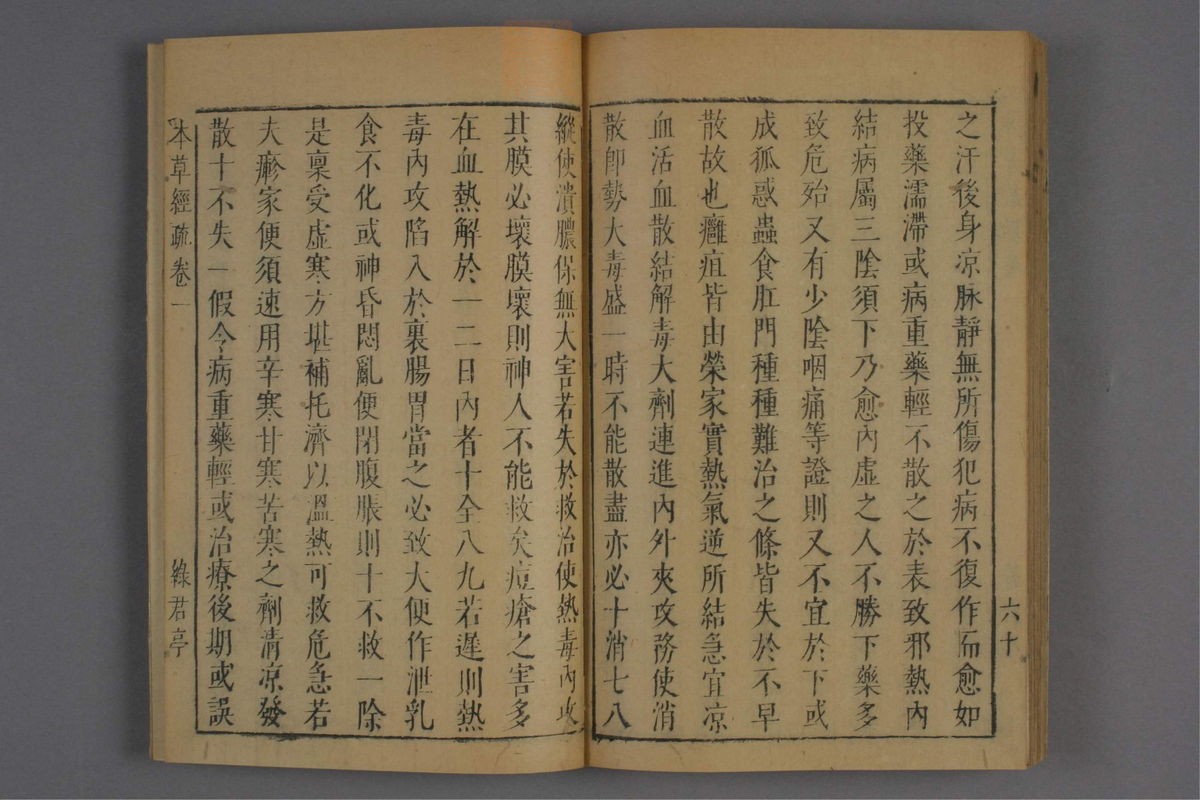 之汗後身涼脉靜無所傷犯病不復作而愈如
投藥濡滯或病重藥輕不散之於表致邪熱內
結病屬三陰須下乃愈內虛之人不勝下藥多
致危殆又有少陰咽痛等證則又不宜於下或
成狐惑蟲食肛門種種難治之條皆失於不早
散故也癰疽皆由榮家實熱氣逆所結急宜凉
血活血散結解毒大劑連進內外夾攻務使消
散卽勢大毒盛一時不能散盡亦必十消七八
六十
縱使潰膿保無大害若失於救治使熱毒內攻
其膜必壞膜壞則神人不能救矣痘瘡之害多
在血熱解於一二日內者十全八九若遲則熱
毒內攻陷入於裏腸胃當之必致大便作泄乳
食不化或神昏悶亂便閉腹脹則十不救一除
是稟受虛寒方堪補托濟以溫熱可救危急若
夫瘮家便須速用辛寒甘寒苦寒之劑清凉發
散十不失一假令病重藥輕或治療後期或誤
本草經疏 卷一
綠君亭